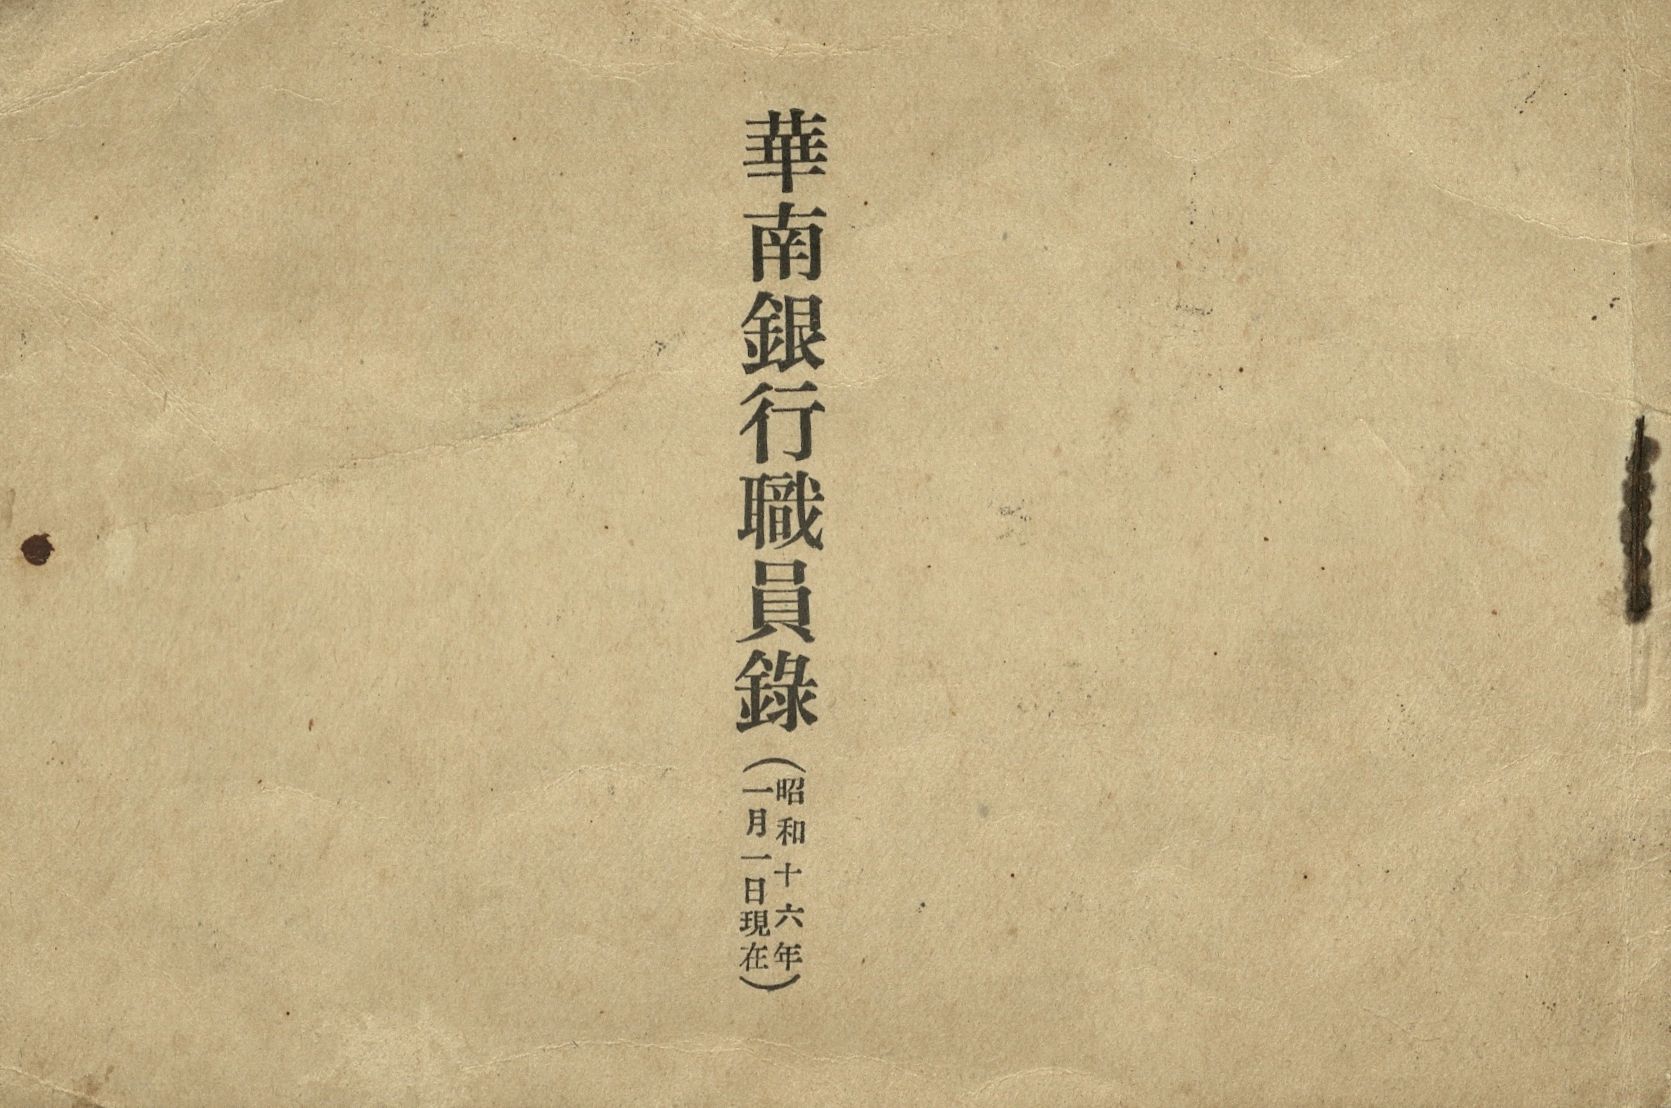 華南銀行職員錄
(昭和十六年
一月一日現在)